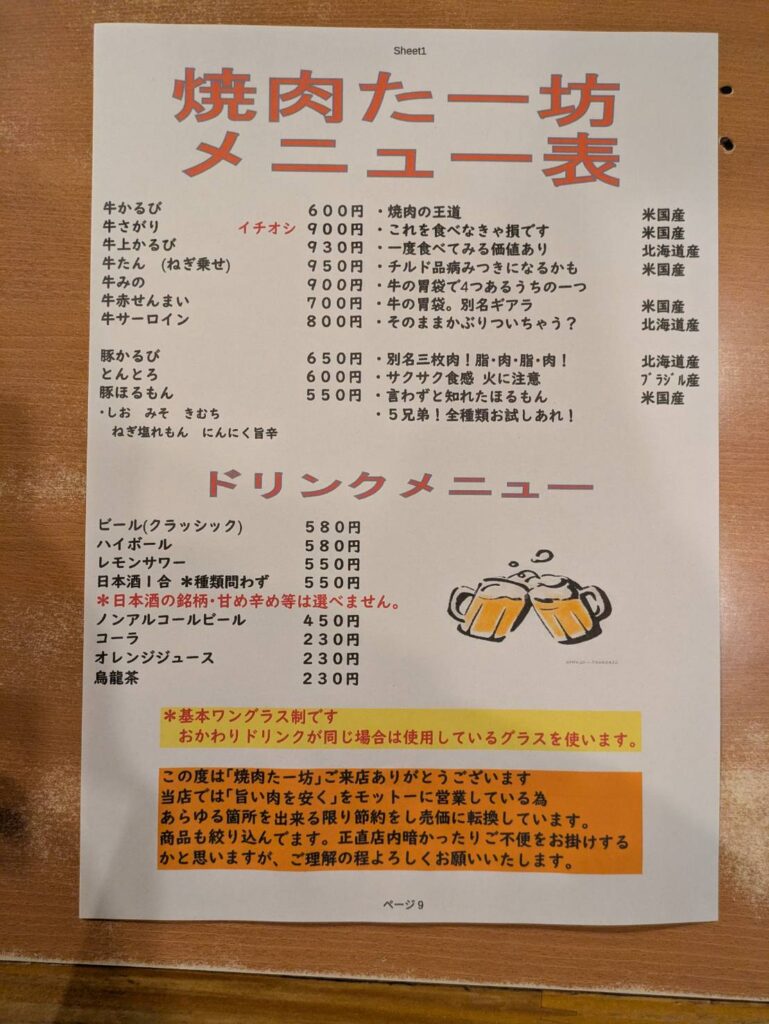 Sheet1
焼肉たー坊
メニュー表
牛かるび ６００円 ・焼肉の王道 米国産
牛さがり イチオシ ９００円 ・これを食べなきゃ損です 米国産
牛上かるび ９３０円 ・一度食べてみる価値あり 北海道産
牛たん (ねぎ乗せ) ９５０円 ・チルド品病みつきになるかも 米国産
牛みの ９００円 ・牛の胃袋で4つあるうちの一つ
牛赤せんまい ７００円 ・牛の胃袋。別名ギアラ 米国産
牛サーロイン ８００円 ・そのままかぶりついちゃう？ 北海道産
豚かるび ６５０円 ・別名三枚肉！脂・肉・脂・肉！ 北海道産
とんとろ ６００円 ・サクサク食感 火に注意 ﾌﾞﾗｼﾞﾙ産
豚ほるもん ５５０円 ・言わずと知れたほるもん 米国産
・しお みそ きむち ・５兄弟！全種類お試しあれ！
ねぎ塩れもん にんにく旨辛
ドリンクメニュー
ビール(クラッシック) ５８０円
ハイボール ５８０円
レモンサワー ５５０円
日本酒１合 ＊種類問わず ５５０円
＊日本酒の銘柄・甘め辛め等は選べません。
ノンアルコールビール ４５０円
コーラ ２３０円
オレンジジュース ２３０円
烏龍茶 ２３０円
＊基本ワングラス制です
おかわりドリンクが同じ場合は使用しているグラスを使います。
この度は｢焼肉たー坊｣ご来店ありがとうございます
当店では｢旨い肉を安く｣をモットーに営業している為
あらゆる箇所を出来る限り節約をし売価に転換しています。
商品も絞り込んでます。正直店内暗かったりご不便をお掛けする
かと思いますが、ご理解の程よろしくお願いいたします。
ページ 9